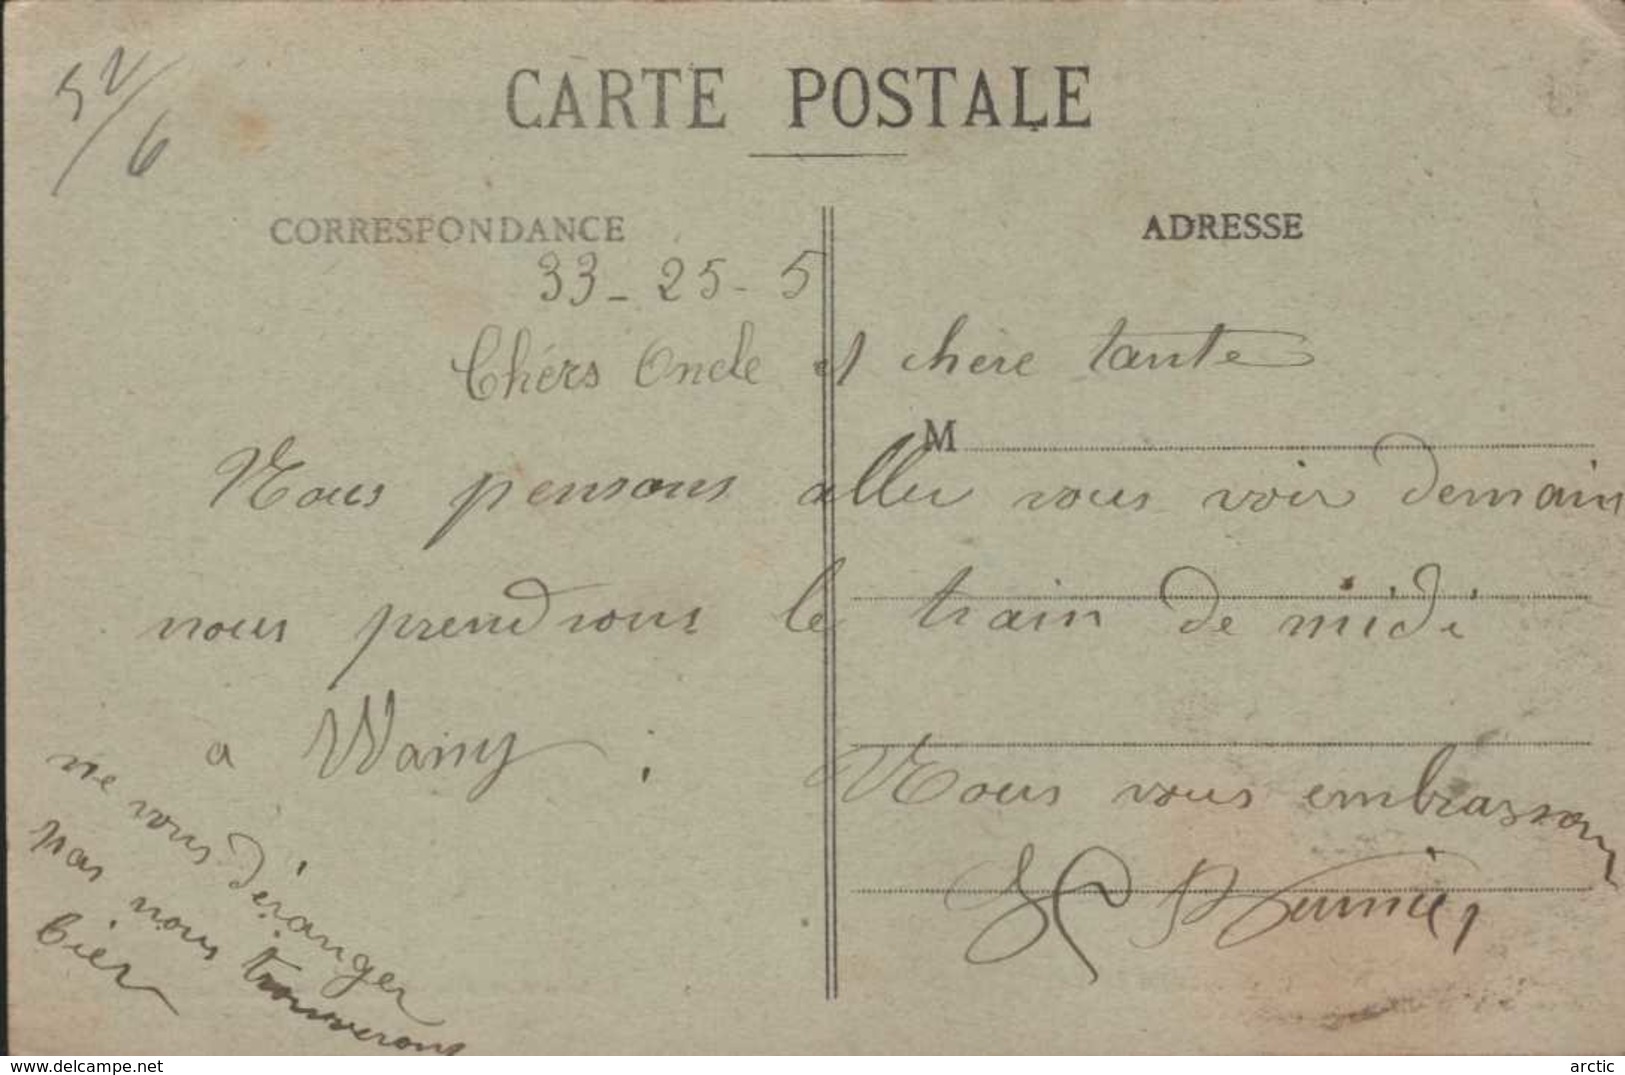 52/6
CARTE POSTALE
CORRESPONDANCE
ADRESSE
33-25-5
Chérs Oncle et chère tante
M
Nous pensons aller vous voir demain
nous prendrons le train de midi
a Wassy .
ne vous déranger
pas nous trouverons
bien
Nous vous embrassons
www.delcampe.net
arctic